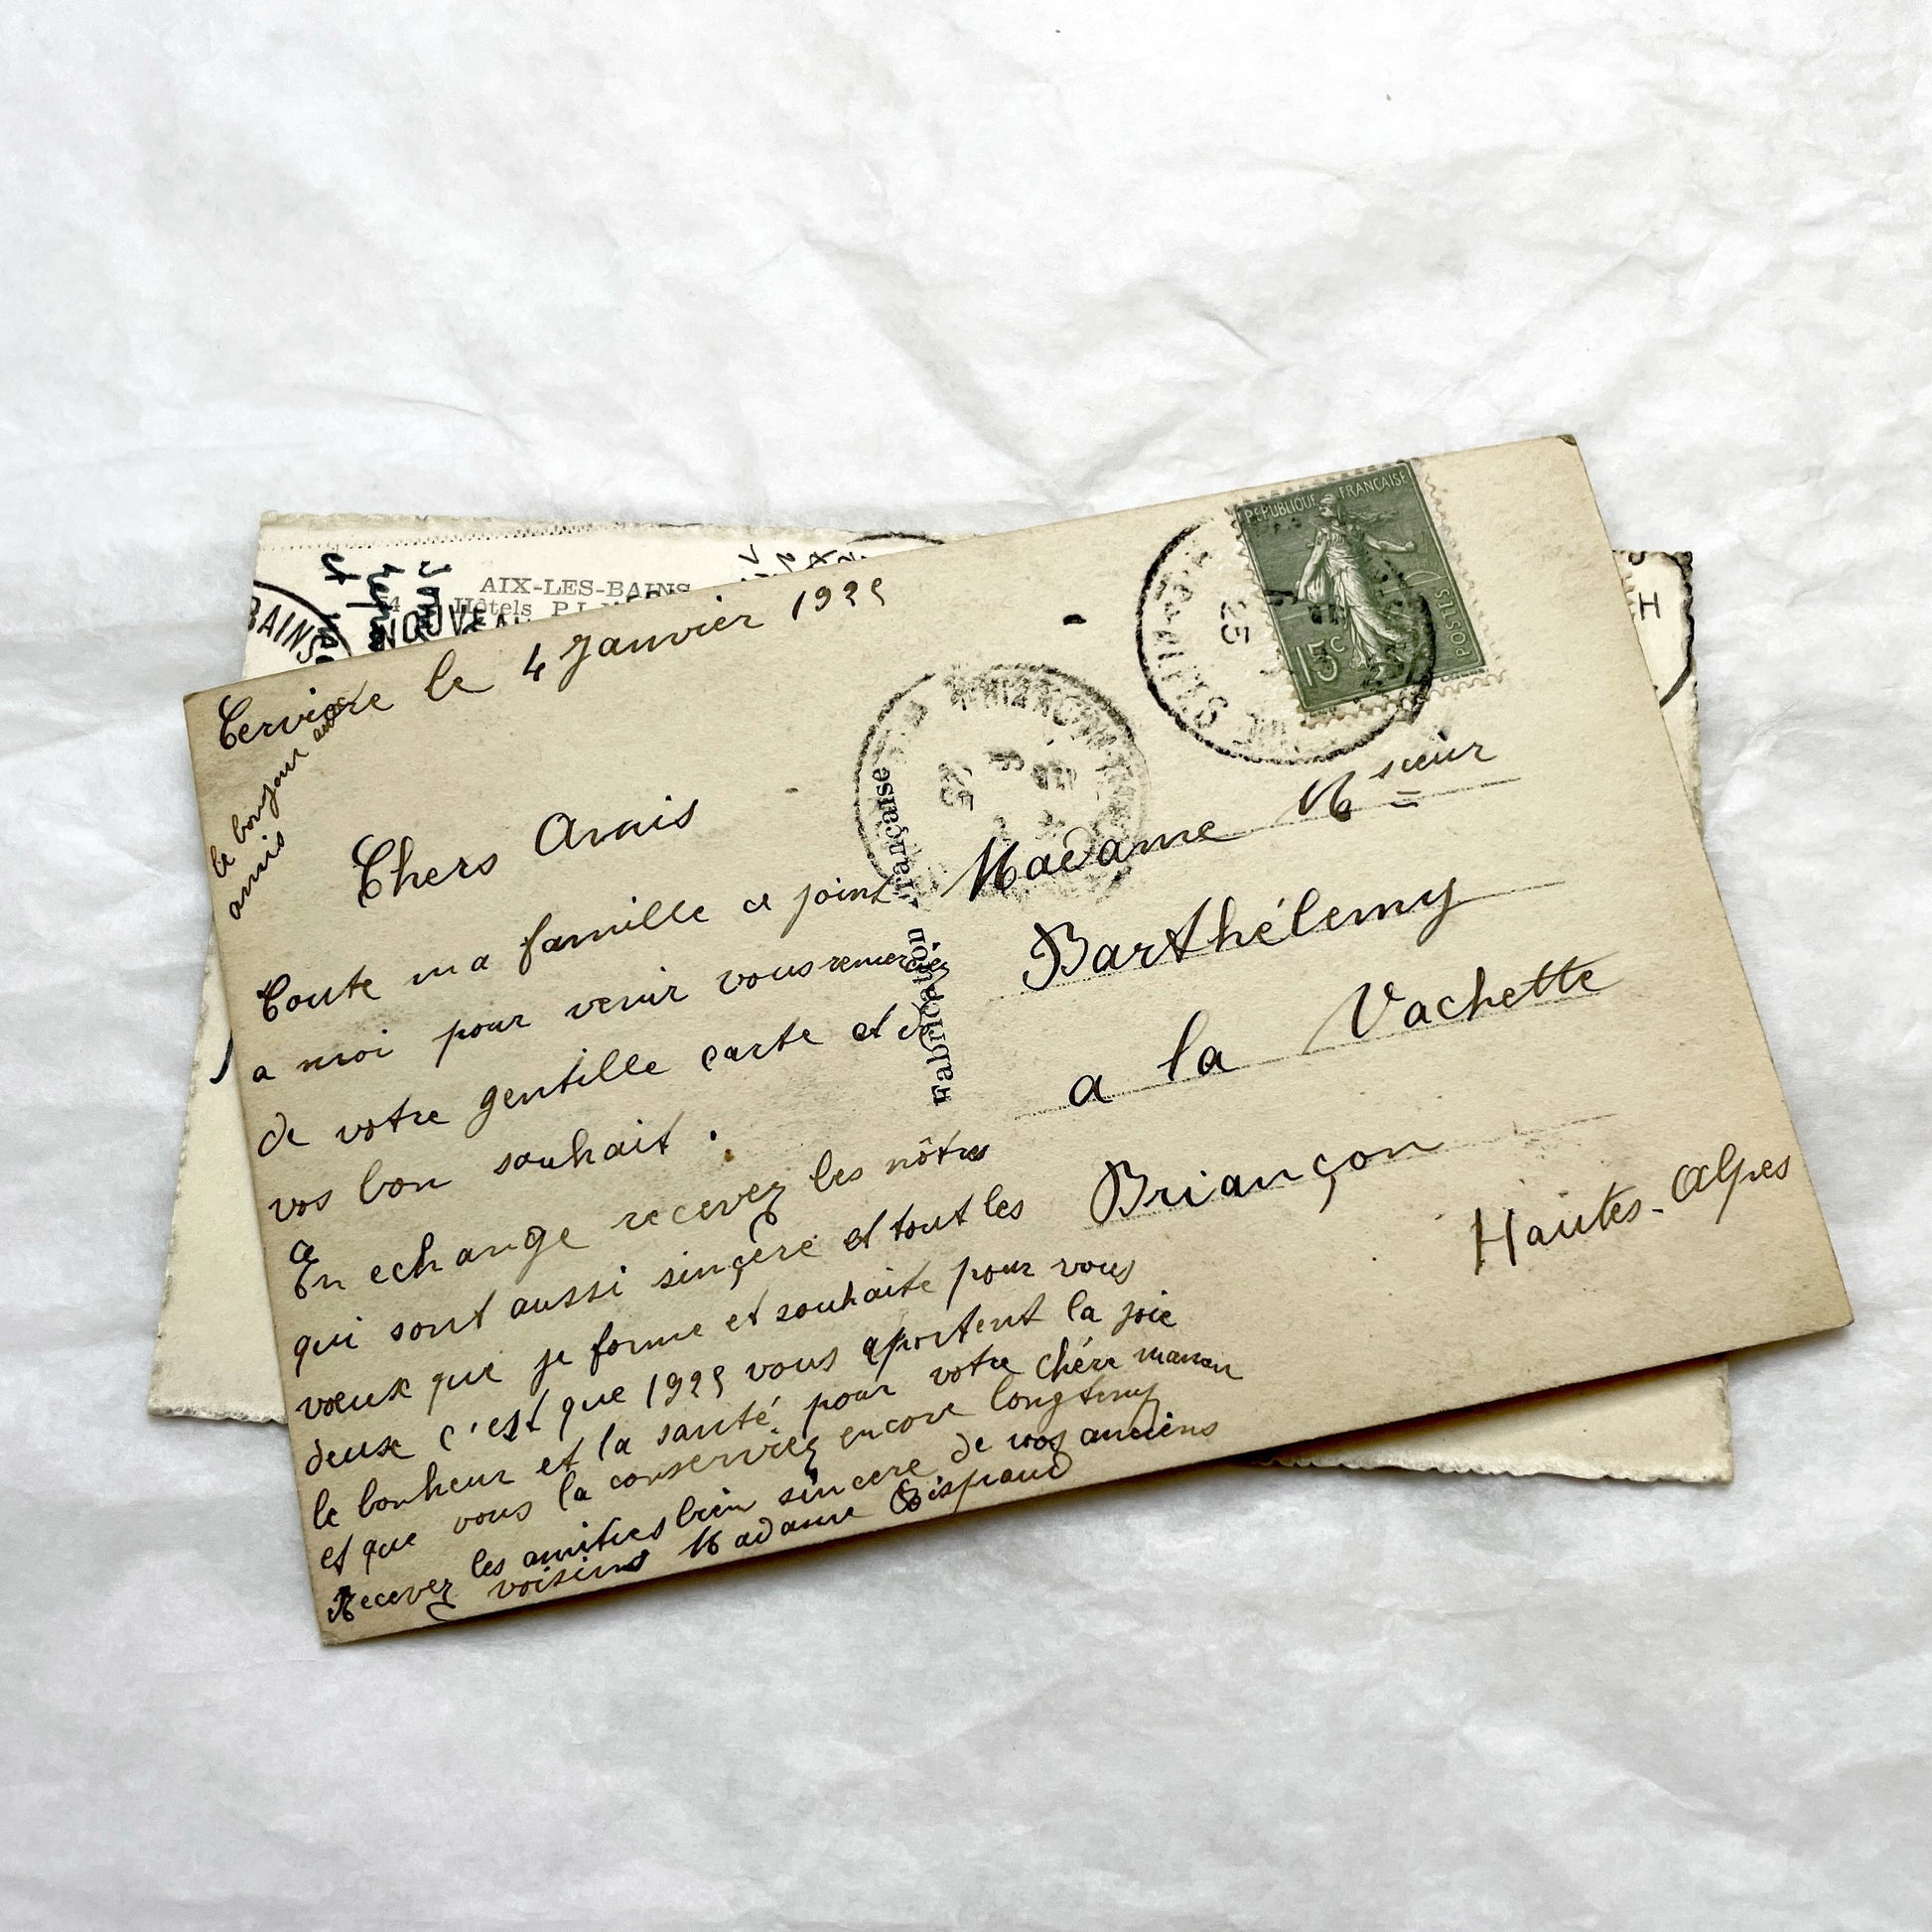 AIX-LES-BAINS
Hôtels
BAINS
Cervière le 4 Janvier 1925
le bonjour aux
amis
Chers Amis
Toute ma famille ce joint
a moi pour venir vous remercier
de votre gentille carte et de
vos bon souhait.
En echange recevez les nôtres
qui sont aussi sinçere et tout les
voeux que je forme et souhaite pour vous
deux c'est que 1925 vous aportent la joie
le bonheur et la santé pour votre chére maman
et que vous la conserviez encore longtemp
Recevez les amities bien sincere de vos anciens
voisins Madame
Fabrication Française
REPUBLIQUE FRANÇAISE
POSTES
15c
25
25
Madame Msœur
Barthélemy
a la Vachette
Briançon
Hautes-Alpes